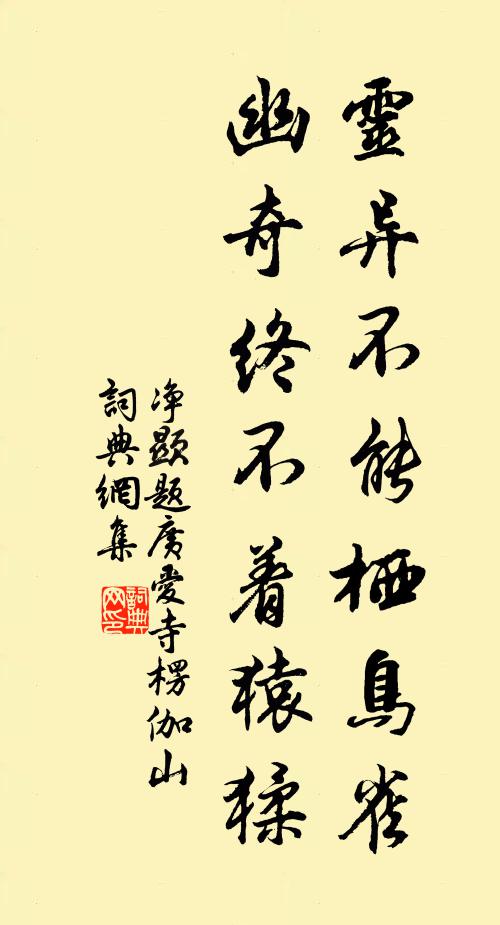 靈異不能栖鳥雀
幽奇終不着猿猱
净顯題廣愛寺楞伽山
詞典網集
詞典网印